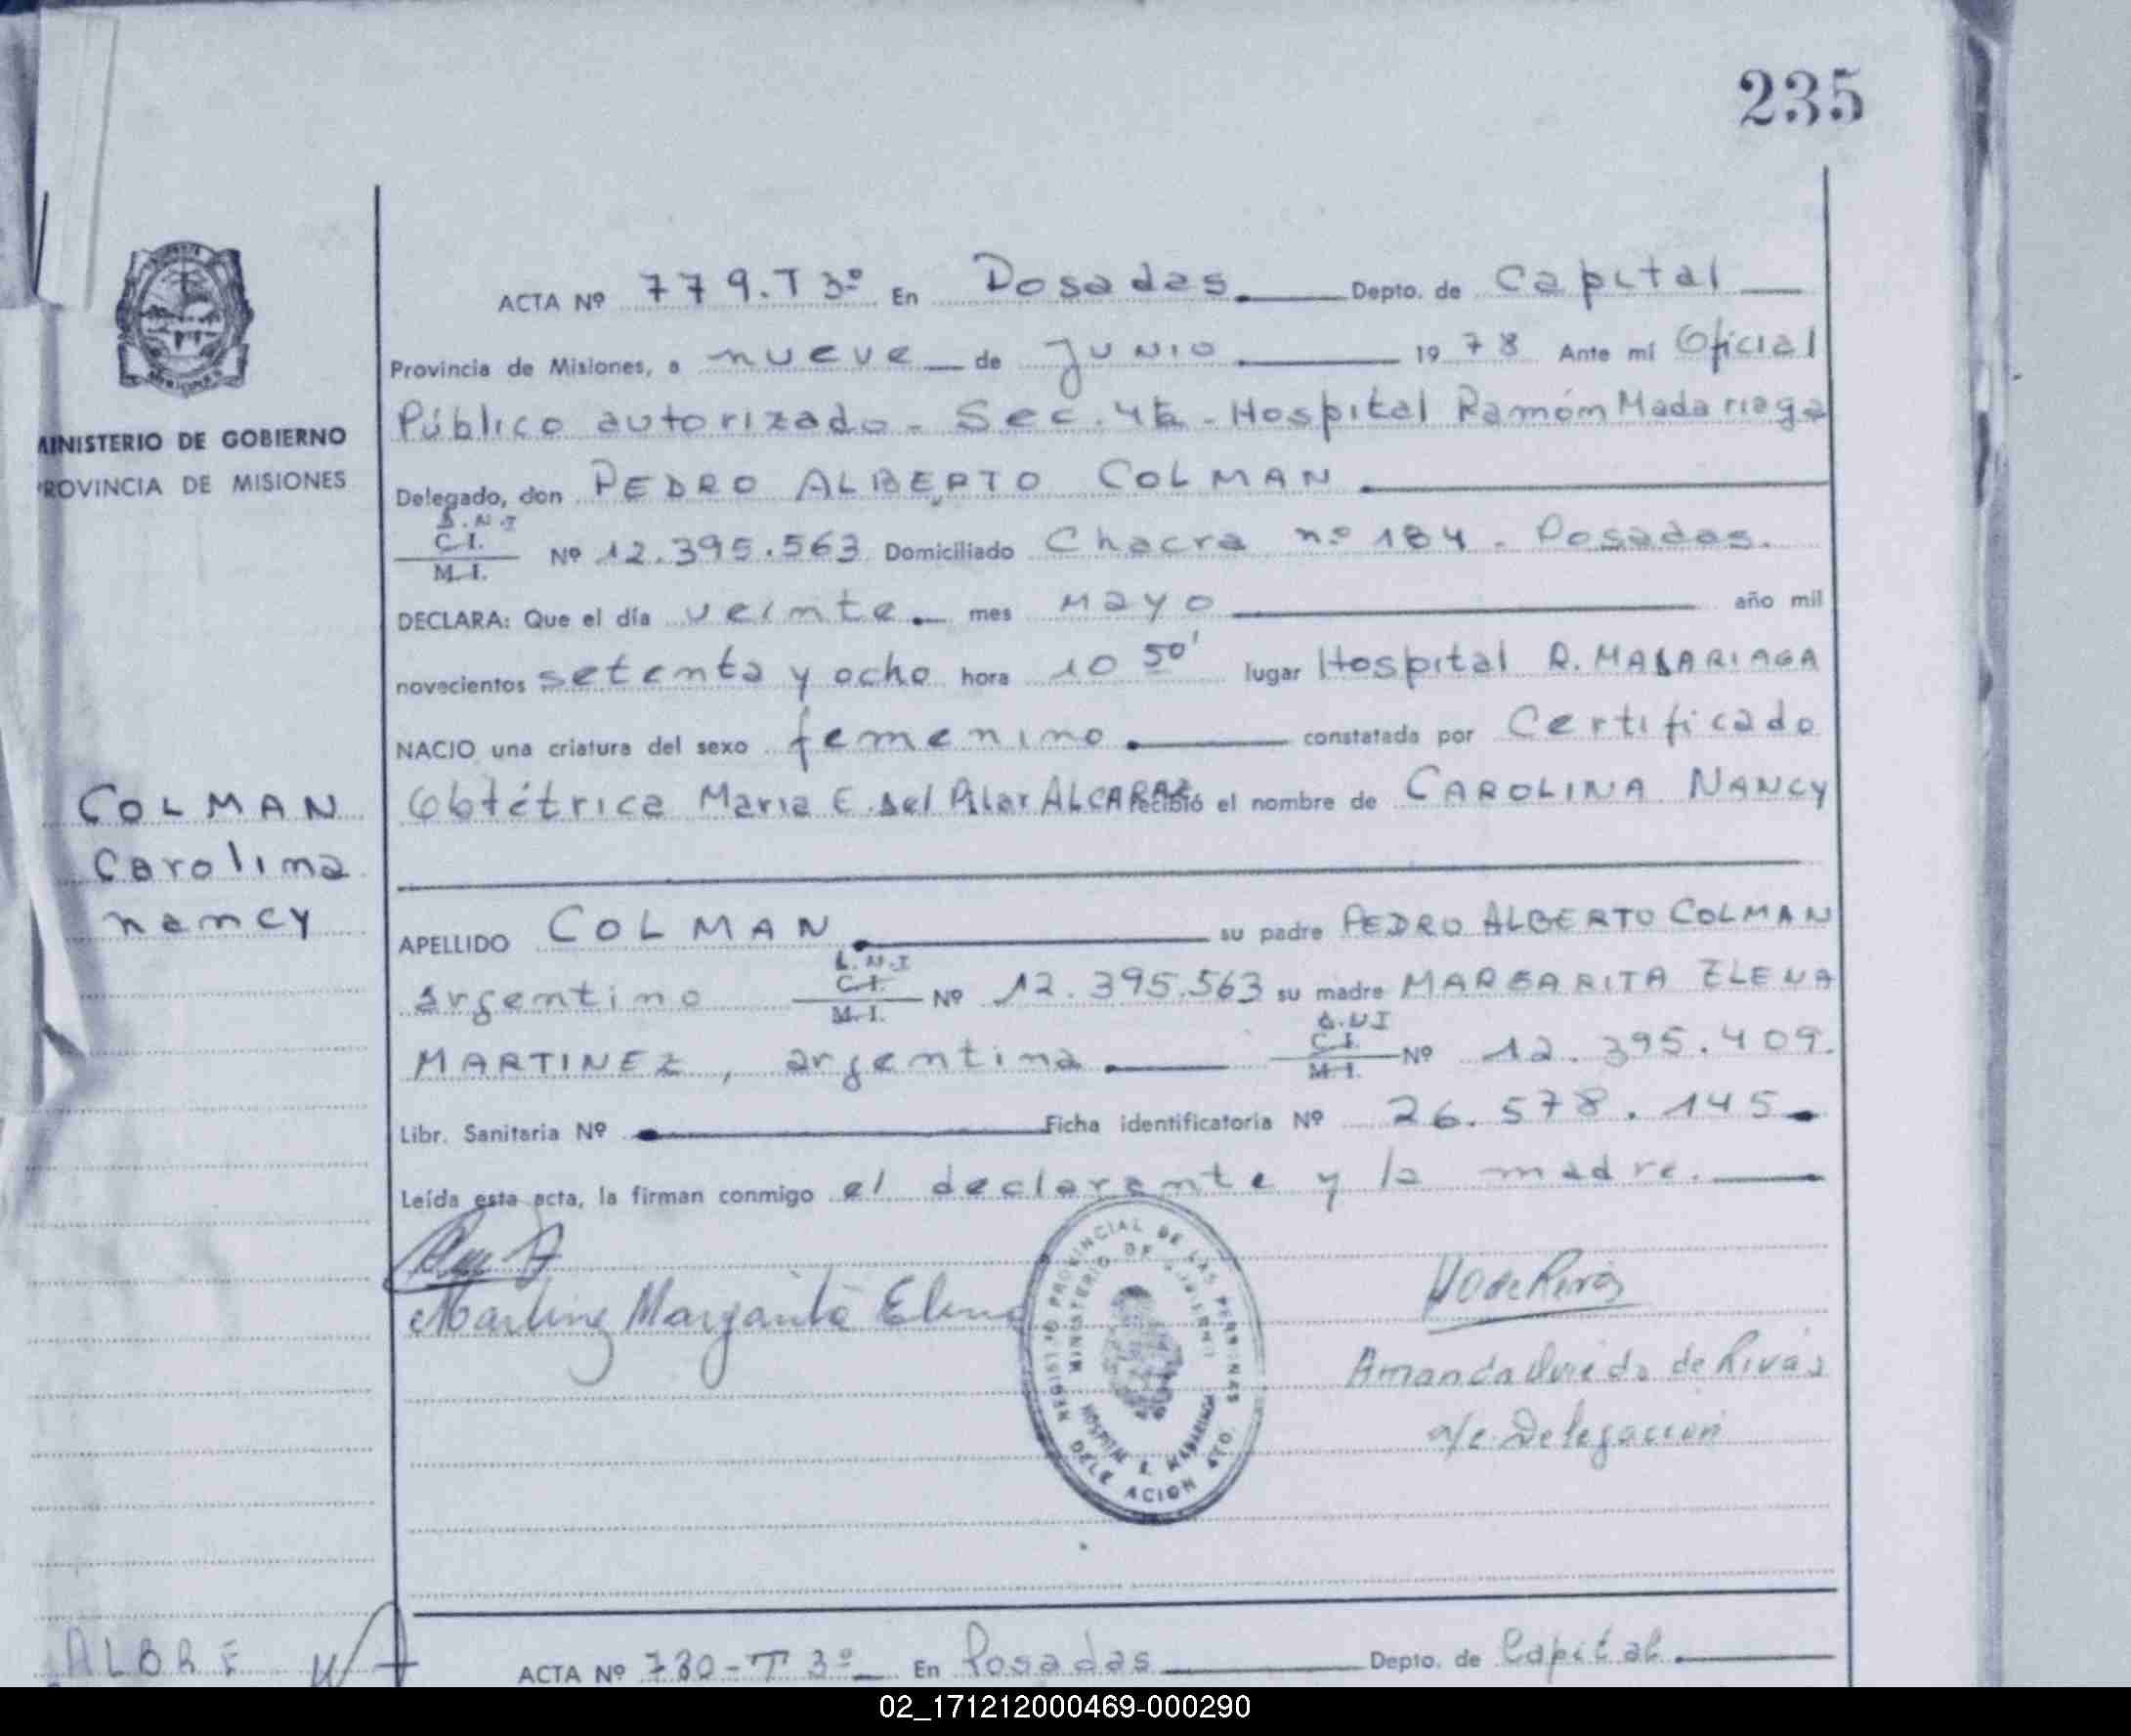 235
ACTA Nº 779.T 3º En Posadas Depto. de Capital
Provincia de Misiones, a nueve de Junio 1978 Ante mí Oficial
Público autorizado - Sec. 4ta - Hospital Ramón Madariaga
MINISTERIO DE GOBIERNO
PROVINCIA DE MISIONES
Delegado, don PEDRO ALBERTO COLMAN
D.N.I
C.I.
M.I.
Nº 12.395.563 Domiciliado Chacra nº 184 - Posadas.
DECLARA: Que el día veinte mes mayo año mil
novecientos setenta y ocho hora 10 50' lugar Hospital R. MADARIAGA
NACIO una criatura del sexo femenino constatada por Certificado
Obtétrica Maria E. del Pilar ALCARAZ recibió el nombre de CAROLINA NANCY
COLMAN
Carolina
nancy
APELLIDO COLMAN su padre PEDRO ALBERTO COLMAN
argentino D.N.I C.I. M.I. Nº 12.395.563 su madre MARGARITA ELENA
MARTINEZ, argentina D.N.I C.I. M.I. Nº 12.395.409.
Libr. Sanitaria Nº Ficha identificatoria Nº 26.578.145
Leída esta acta, la firman conmigo el declarante y la madre.
Martinez Margarita Elena
REGISTRO PROVINCIAL DE LAS PERSONAS
MINISTERIO DE GOBIERNO
HOSPITAL R. MADARIAGA
DELEGACION 4TO.
Amanda Oviedo de Rivas
a/c. Delegación
ACTA Nº 780-T 3º En Posadas Depto. de Capital
02_171212000469-000290